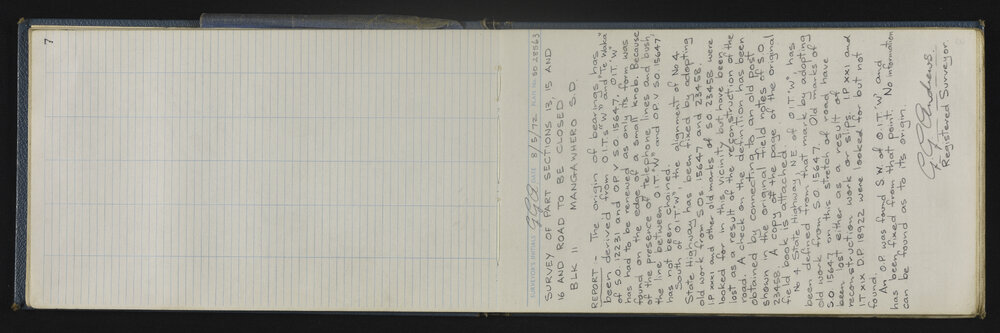 7
SURVEYOR'S INITIALS GGA DATE 8/5/72 PLAN No. SO 28563
SURVEY OF PART SECTIONS 13, 15 AND
16 AND ROAD TO BE CLOSED
BLK 11 MANGAWHERO S.D.
REPORT - The origin of bearings has
been derived from O.I.T.s "W" and "Te Waka"
of S.O. 12231 and O.P. V S.O. 15647. O.I.T. "W"
has had to be renewed as only its form was
found on the edge of a small knob. Because
of the presence of telephone lines and bush
the line between O.I.T. "W" and O.P. V S.O. 15647
has not been chained.
South of O.I.T. "W", the alignment of No. 4
State Highway has been fixed by adopting
old work from S.O.s 15647 and 23458.
I.P. xxi and other old marks of S.O. 23458 were
looked for in this vicinity but have been
lost as a result of the reconstruction of the
road. A check on the definition has been
obtained by connecting to an old post
shown in the original field notes of S.O.
23458. A copy of the page of the original
field book is attached.
No. 4 State Highway, NE of O.I.T. "W", has
been defined from that mark by adopting
old work from S.O. 15647. Old marks of
S.O. 15647 on this stretch of road have
been lost either as a result of
reconstruction work or slips. I.P. xxi and
I.T. xix D.P. 18922 were looked for but not
found.
An O.P. was found S.W. of O.I.T. "W" and
has been fixed from that point. No information
can be found as to its origin.
GG Andrews.
Registered Surveyor.